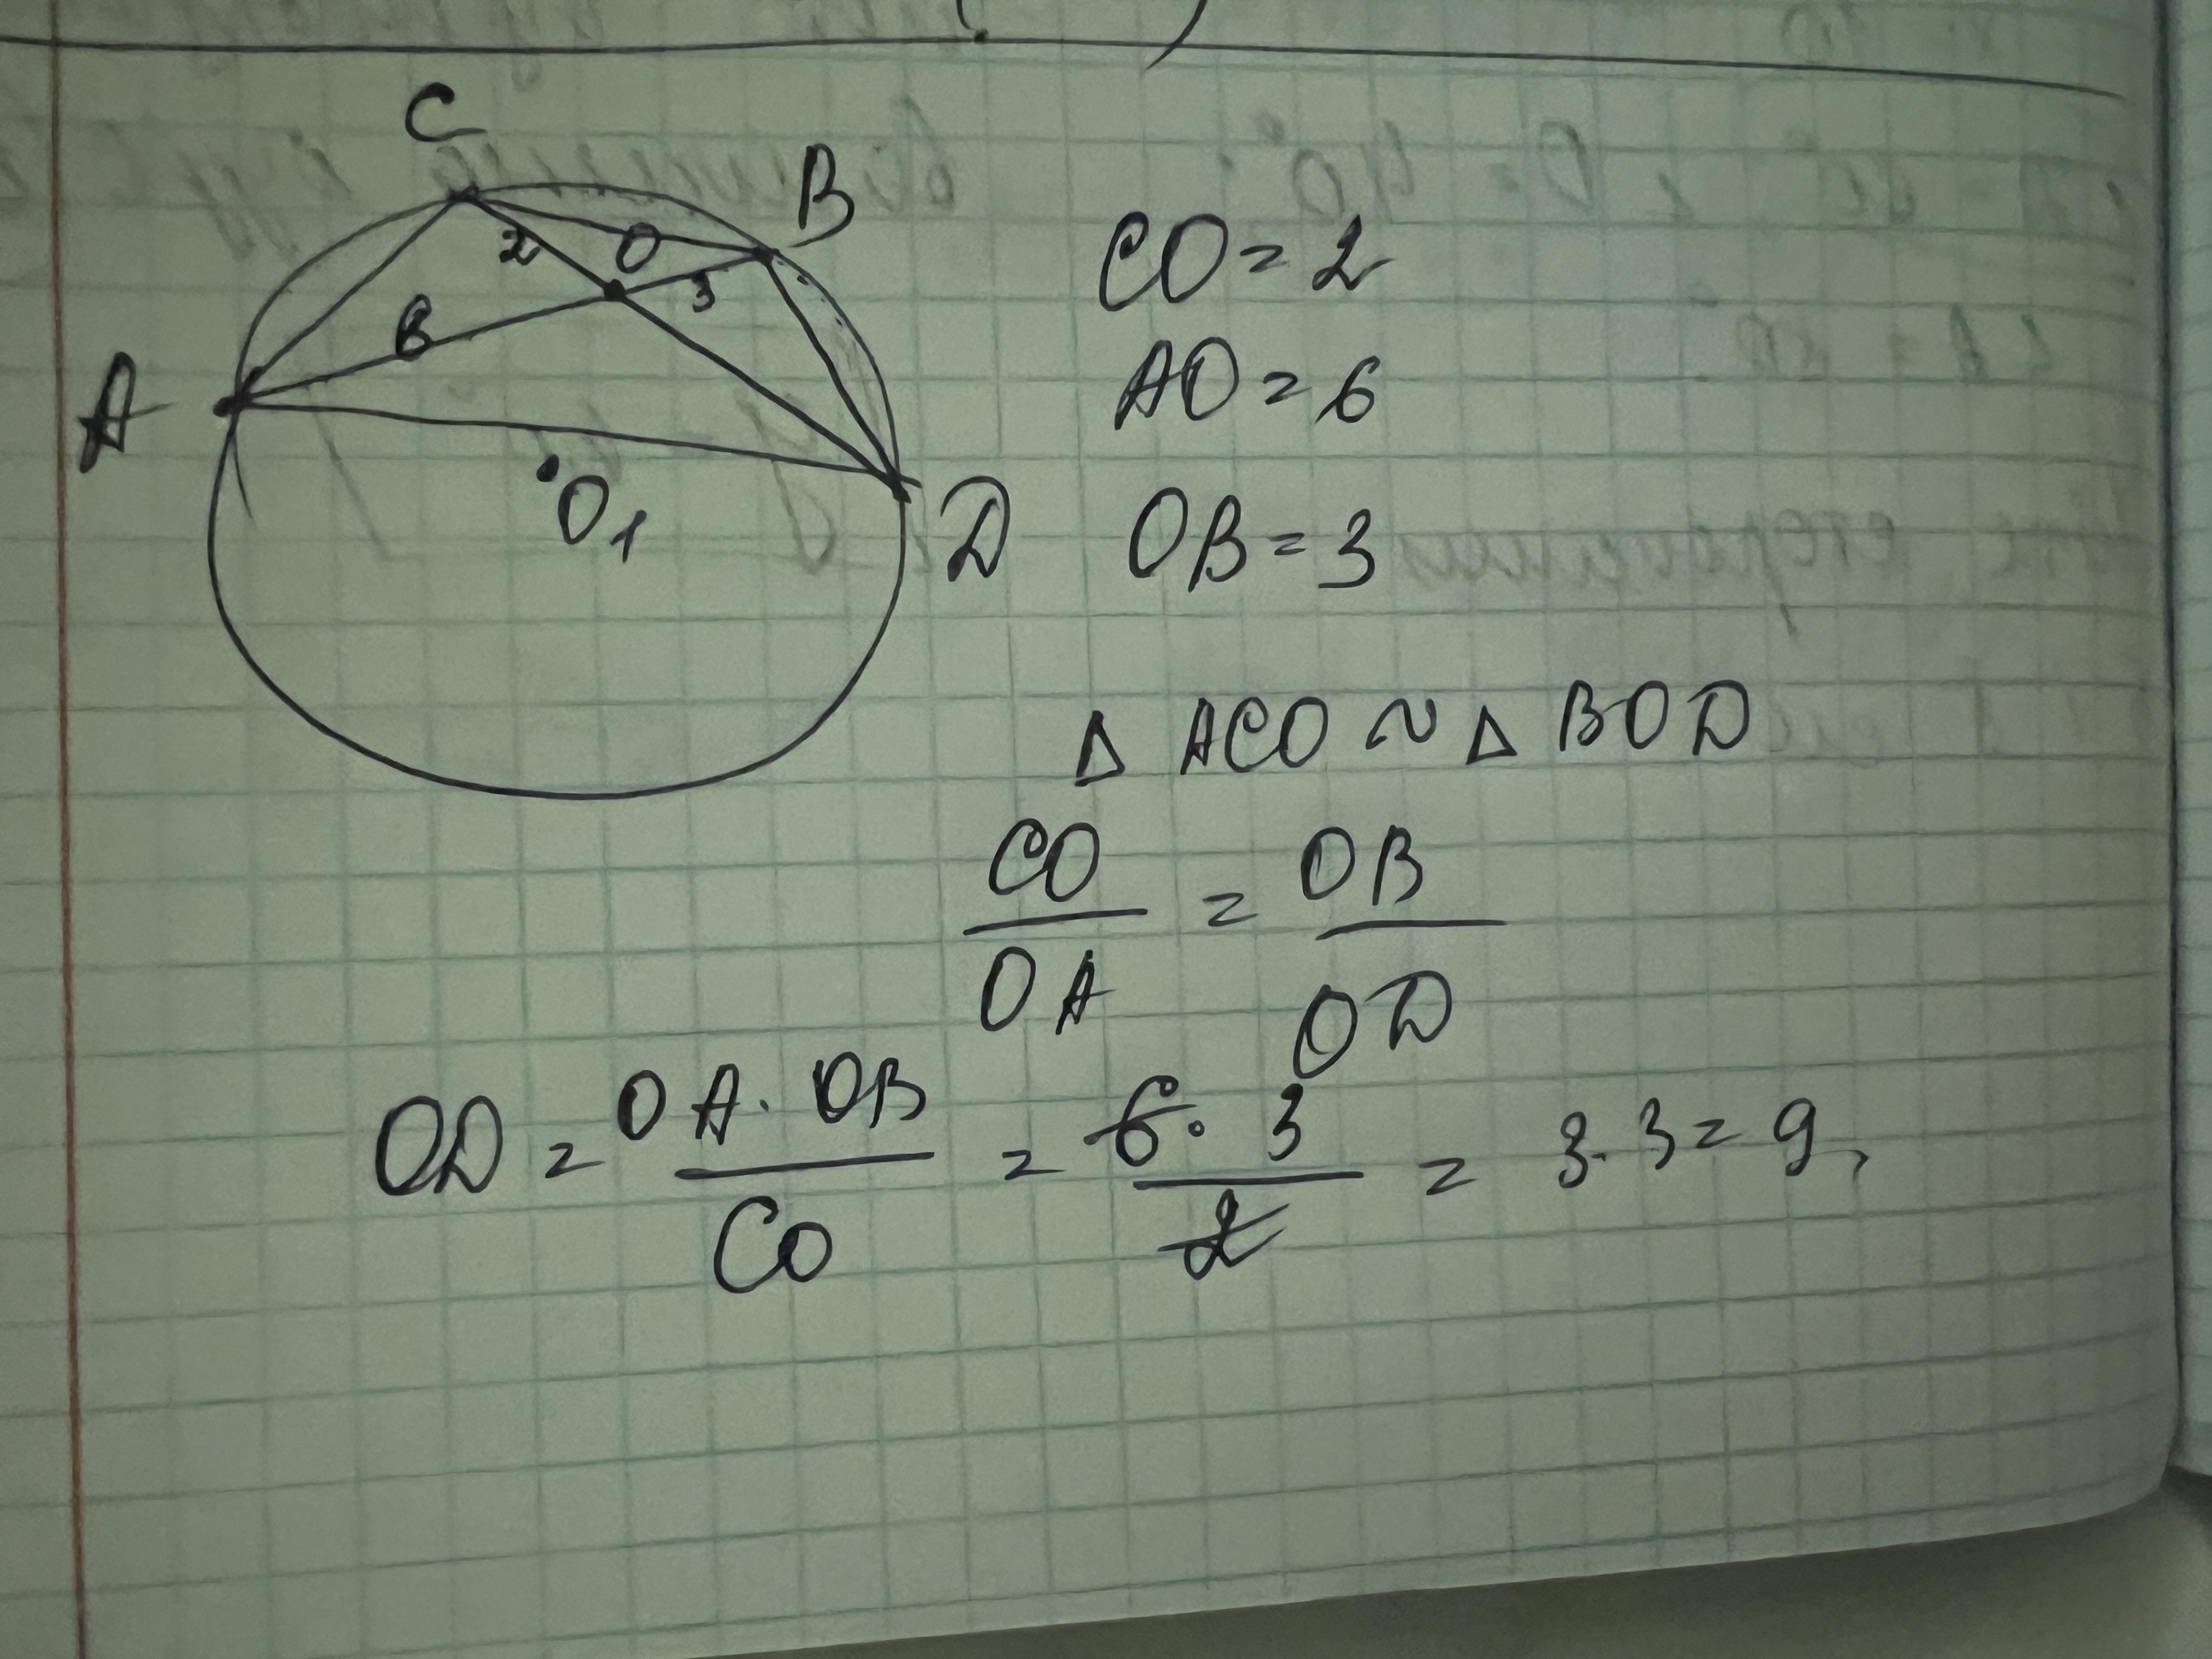 C
B
2 O 3
6
A
O1
D
CO = 2
AO = 6
OB = 3
Δ ACO ~ Δ BOD
CO/OA = OB/OD
OD = OA · OB/CO = 6 · 3/2 = 3 · 3 = 9,